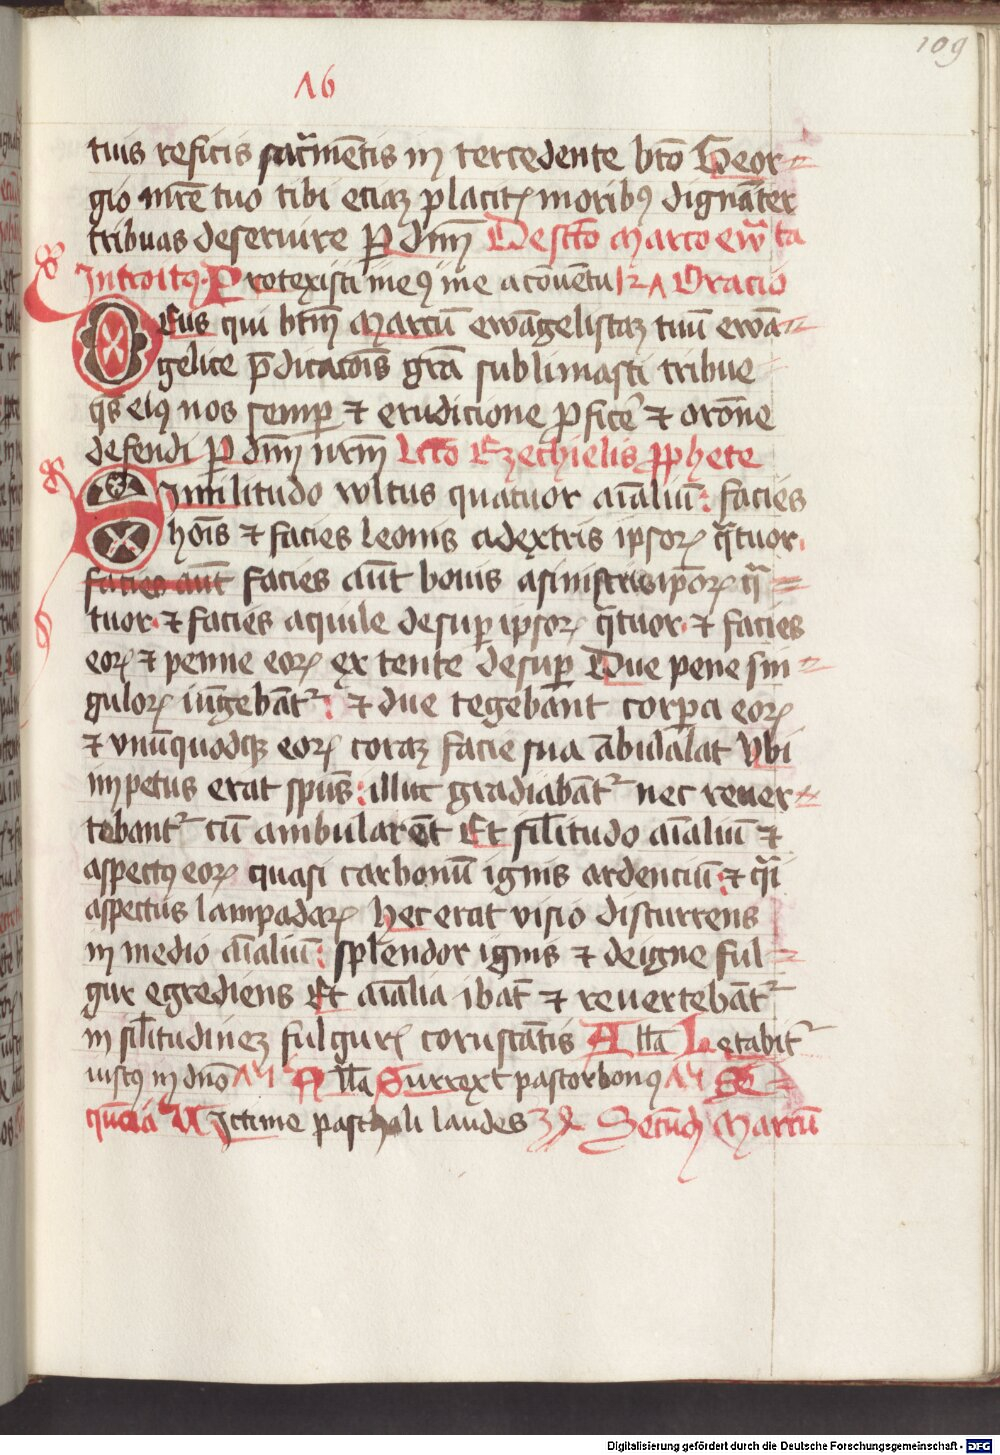 109
16
tuis reficis sacr̄mētis in tercedente bt̄o Geor-
gio m̄re tuo tibi eciaꝫ placitꝝ moribꝯ dignāter
tribuas deseruire P̄ dn̄m De sct̄o Marco ewā ta
Introitꝯ Protexisti me ꝯ me a cōuētu 12 A Oracio
Deus qui bt̄m Marcū ewāgelistaꝫ tuū ewā-
gelice p̄dicacōis grā sublimasti tribue
qs̄ eiꝯ nos semꝑ ⁊ erudicione ꝓficē ⁊ or̄one
defendi P̄ dn̄m nr̄m Lcc̄o Ezechielis ꝓphete
Similitudo vultus quatuor aīaliū: facies
hoīs ⁊ facies leonis adextris ipsoꝝ q̄tuor.
facies aūt facies aūt bouis asinistris ip̄oꝝ q̄-
tuor. ⁊ facies aquile desuꝑ ipsoꝝ q̄tuor. ⁊ facies
eoꝝ ⁊ penne eoꝝ ex tente desuꝑ Due pene sin-
guloꝝ iūgebāt᷑: ⁊ due tegebant corꝑa eoꝝ
⁊ vnūquodqꝫ eoꝝ coraꝫ facie sua ābulālat Vbi
impetus erat spūs: illuc gradiabāt᷑ nec reuer-
tebant᷑ cū ambularēt Et sil̄itudo aīaliū ⁊
aspectꝯ eoꝝ quasi carbonū ignis ardenciū: ⁊ q̄i
aspectus lampadaꝝ hec erat visio discurrens
in medio aīaliū: splendor ignis ⁊ de igne ful-
gur egrediens Et aīalia ibāt ⁊ reuertebāt᷑
in sil̄itudineꝫ fulguꝝ coruscātis All̄a Letabit᷑
iustꝯ in dn̄o All̄a Surrexit pastor bonꝯ Se-
quēcia Victime paschali laudes Secūdꝯ Marcū
Digitalisierung gefördert durch die Deutsche Forschungsgemeinschaft - DFG